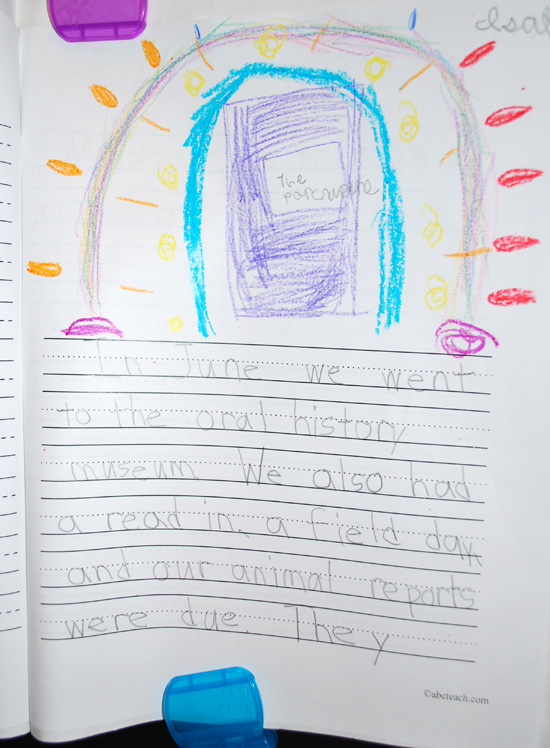 The
porcupine
In June we went
to the oral history
museum. We also had
a read in, a field day
and our animal reports
were due. They
©abcteach.com